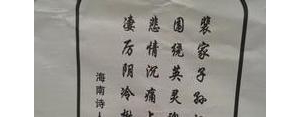 裴家子孙
围绕英灵
悲情沉痛
凄厉阴冷
海南诗人